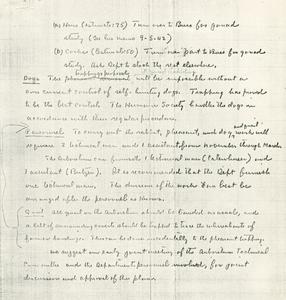 (a) Hens (Estimate: 75) Turn over to Buss for gonad
study (See his memo 9-5-42)
(b) Cocks (Estimate: 50) Turn over part to Buss for gonad
study. Ask Dept to stock the rest elsewhere.
Dogs The pheasant trapping will be impossible without a
con current control of self-hunting dogs. Trapping has proved
to be the best control. The Humane Society handles the dogs in
accordance with their regular procedure.
Personnel To carry out the rabbit, pheasant, and dog work will
require 2 botanical men and 1 assistant from November through March.
The Arboretum can furnish 1 botanical man
and 1 assistant. It is recommended that the Dept furnish
one botanical man. The division of the work can best be
arranged after the personnel is known.
Quail All quail on the Arboretum should be banded in March, and
a belt of surrounding coverts should be trapped to trace the whereabouts of
former bandings. This can be done incidentally to the pheasant trapping.
We suggest an early joint meeting of the Arboretum Technical
Committee and the Department personnel involved, for joint
discussion and approval of this plan.